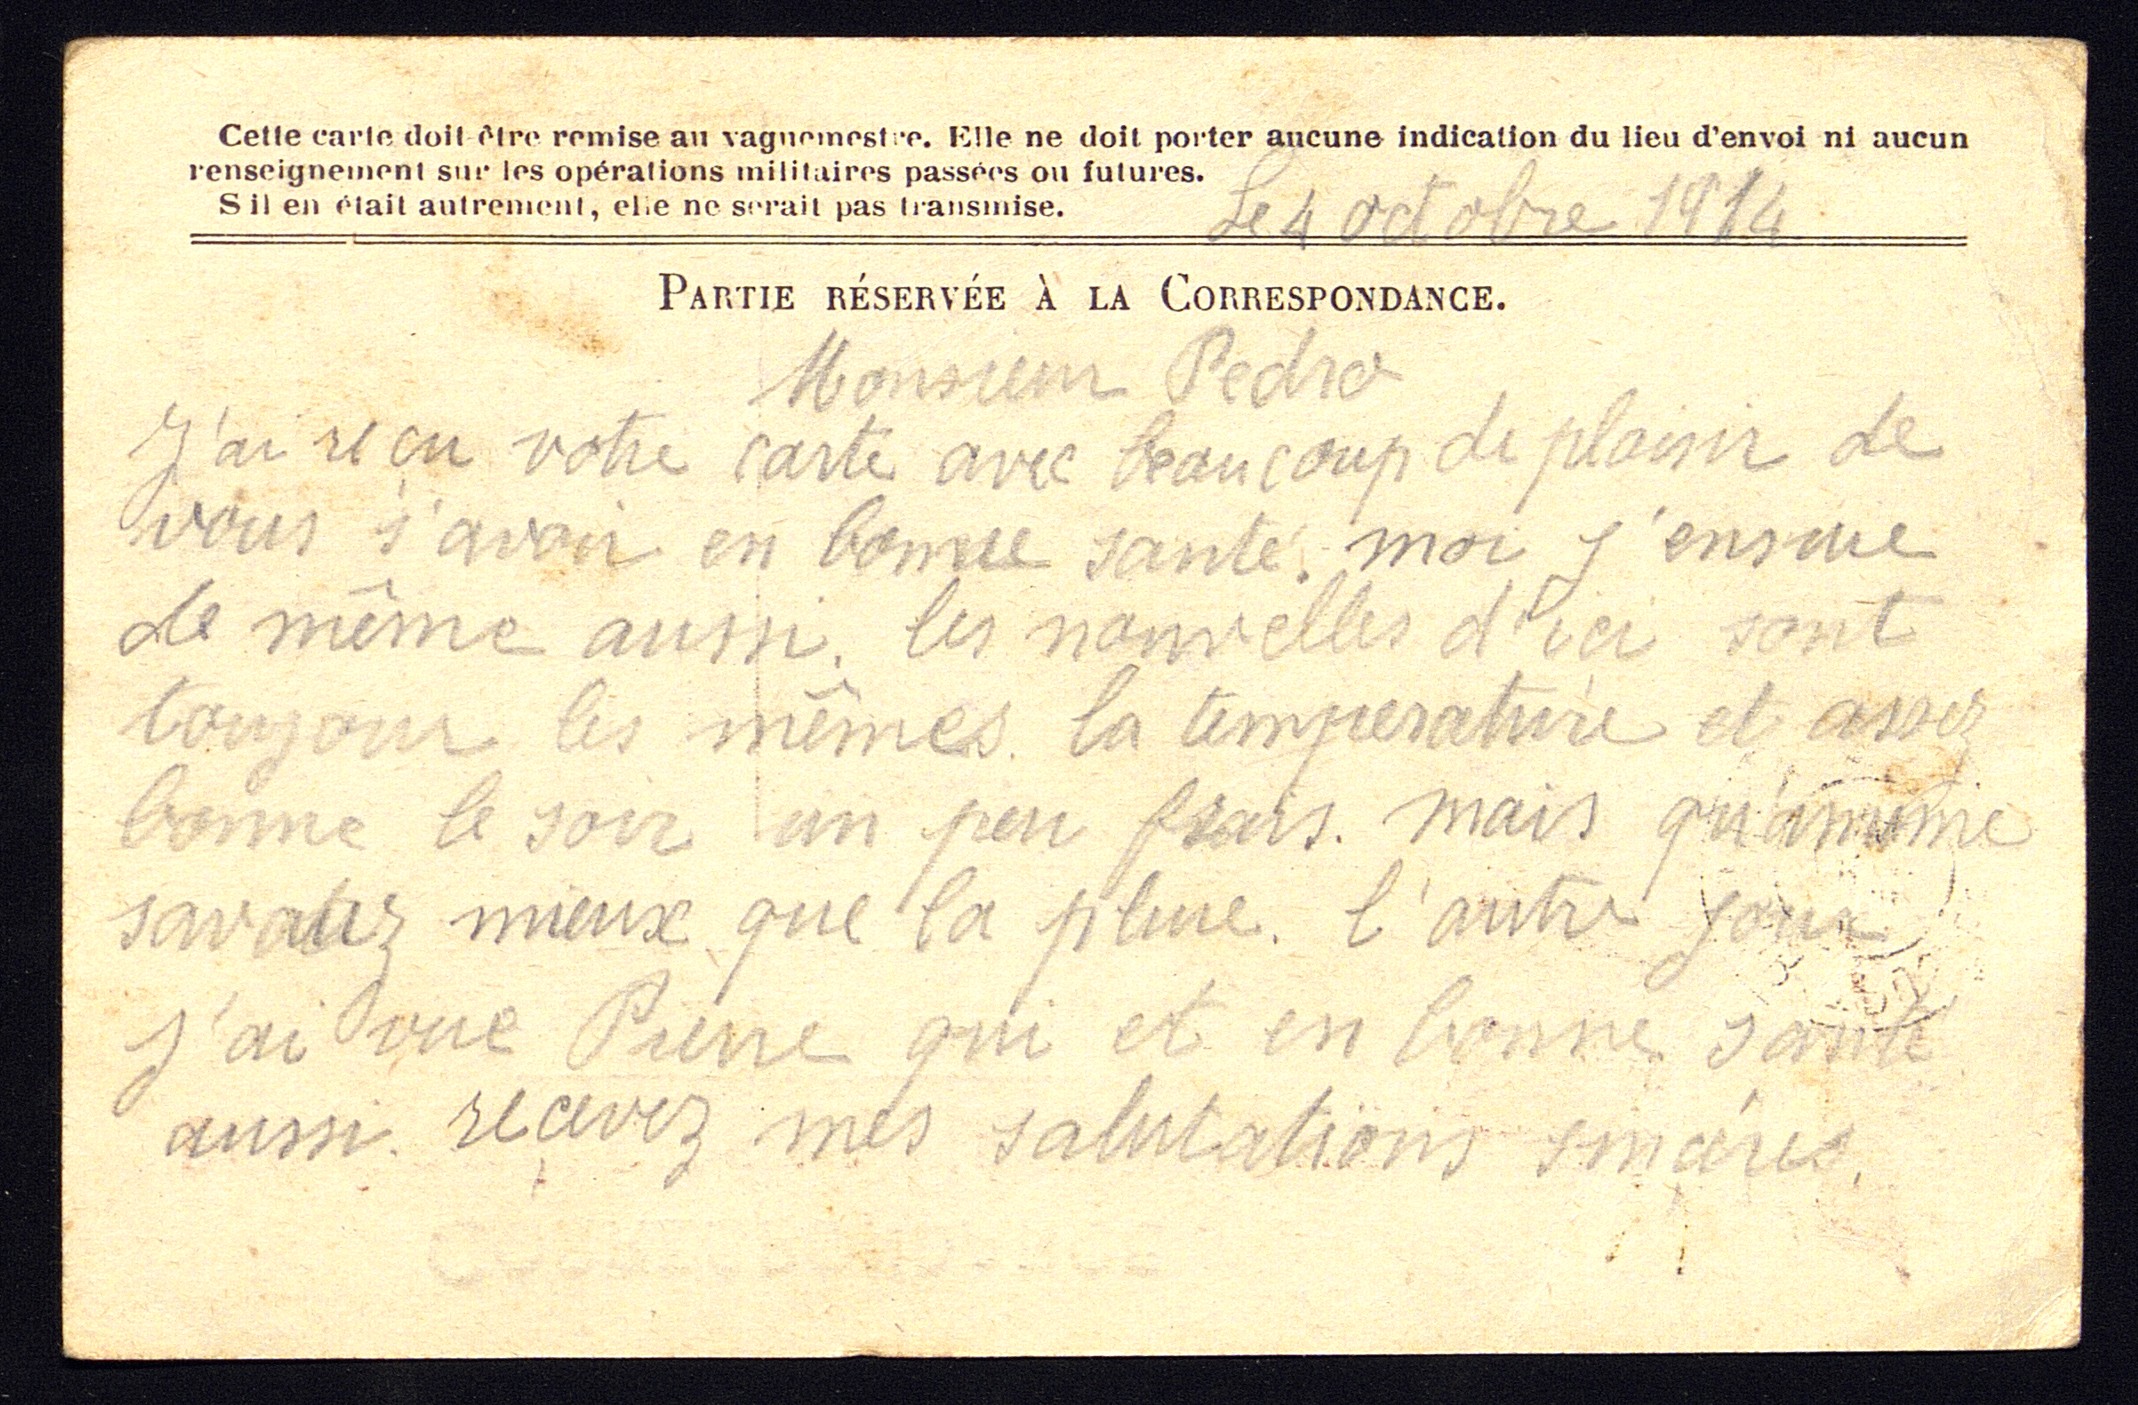 Cette carte doit être remise au vaguemestre. Elle ne doit porter aucune indication du lieu d'envoi ni aucun
renseignement sur les opérations militaires passées ou futures.
S'il en était autrement, elle ne serait pas transmise.
Le 4 octobre 1914
PARTIE RÉSERVÉE À LA CORRESPONDANCE.
Monsieur Pedro
J'ai reçu votre carte avec beaucoup de plaisir de
vous s'avoir en bonne santé. moi j'ensuie
de même aussi. les nouvelles d'ici sont
toujour les mêmes. la temperature et assez
bonne le soir un peu frais. mais qu'amême
savatez mieux que la pluie. l'autre jour
j'ai vue Pierre qui et en bonne santé
aussi. recevez mes salutations sincères.